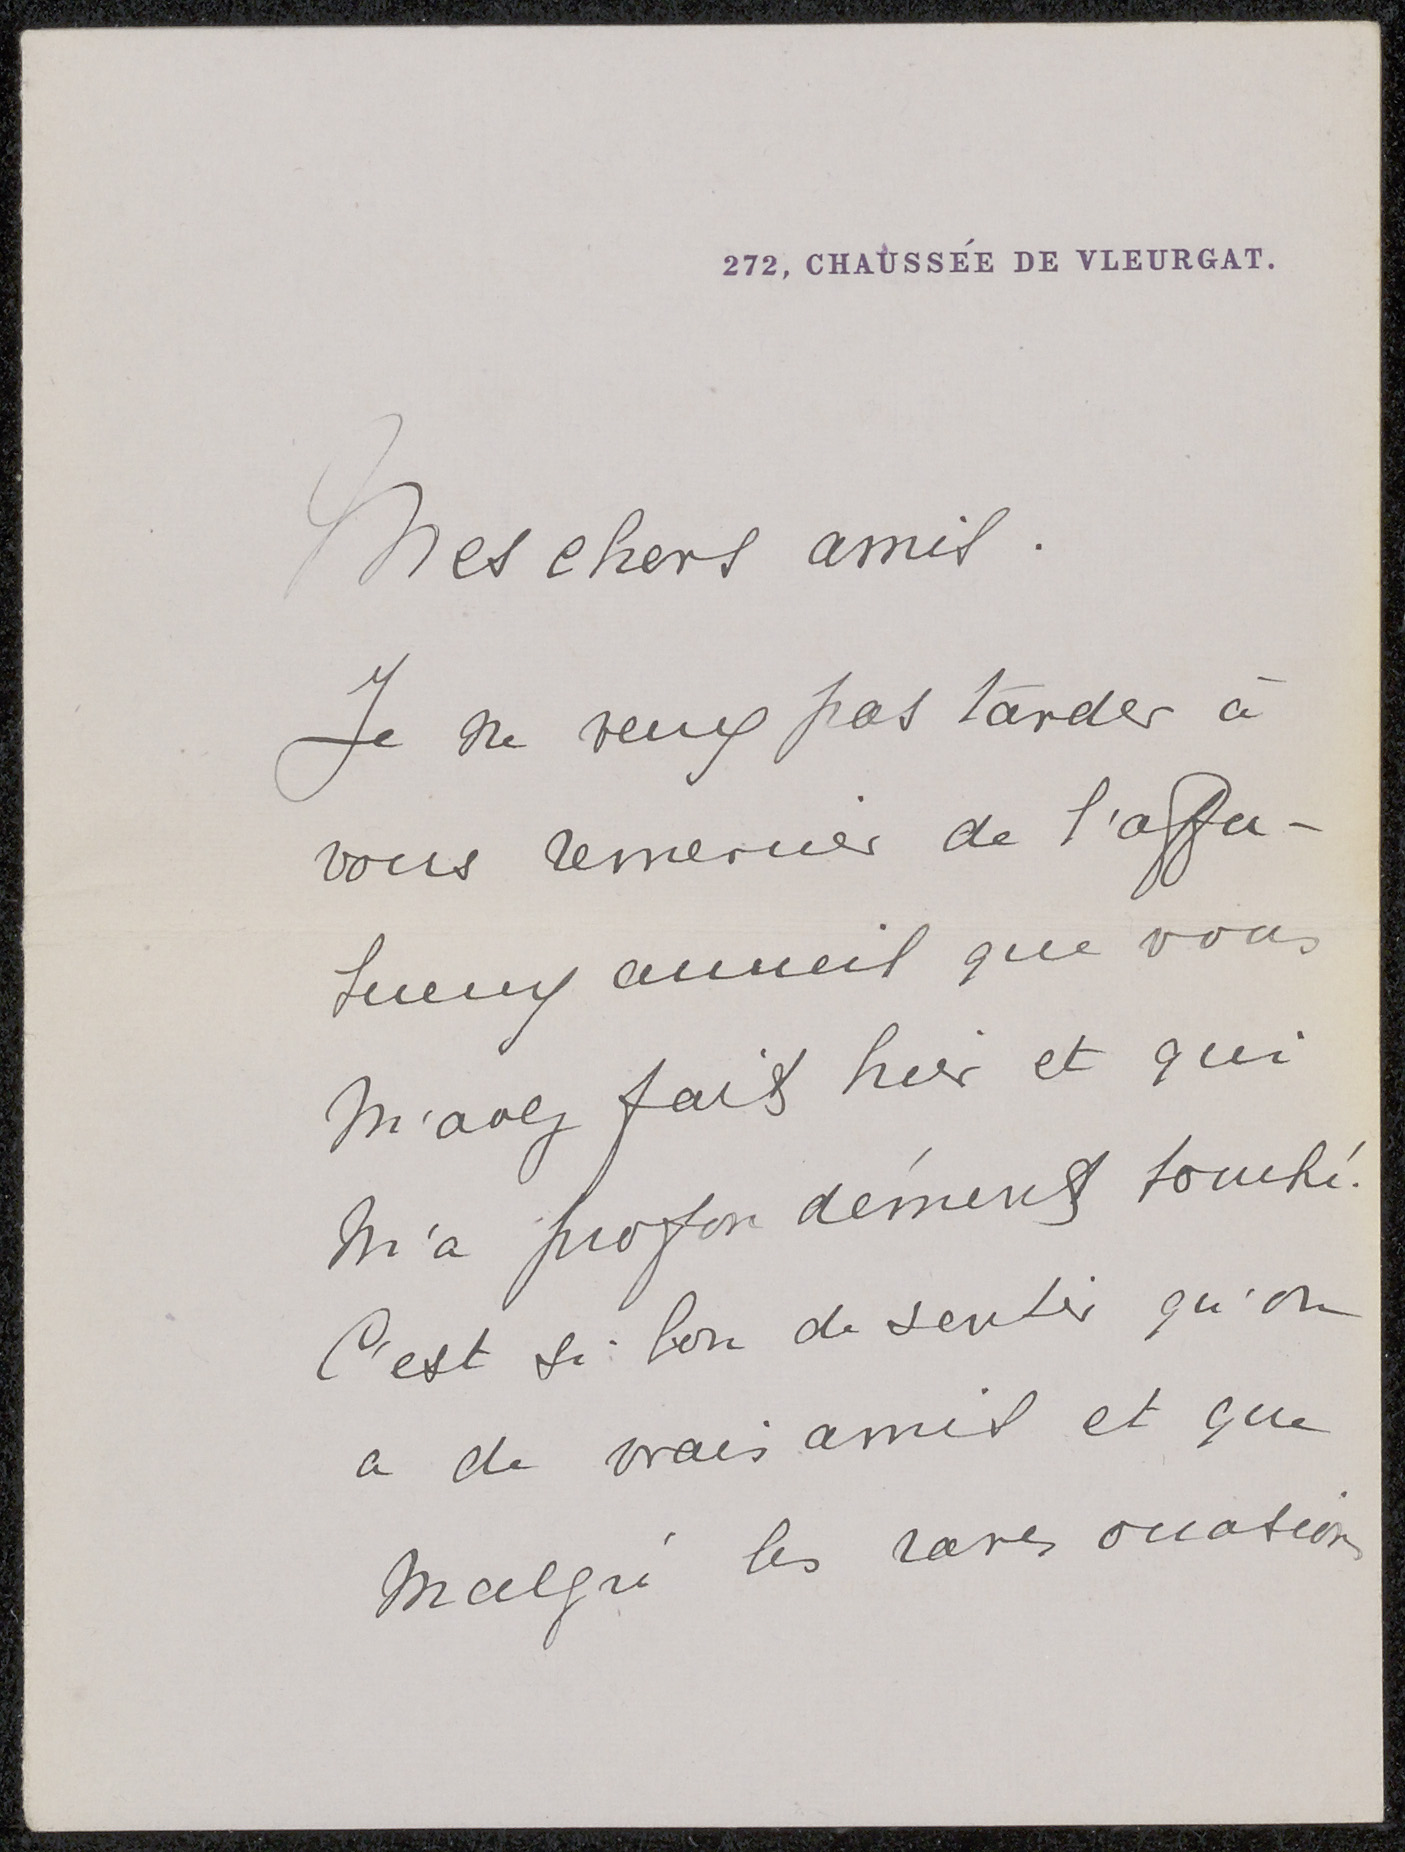 272, CHAUSSÉE DE VLEURGAT.
Mes chers amis.
Je ne veux pas tarder à
vous remercier de l'affec-
tueux accueil que vous
m'avez fait hier et qui
m'a profondément touché.
C'est si bon de sentir qu'on
a de vrais amis et que
malgré les rares occasions